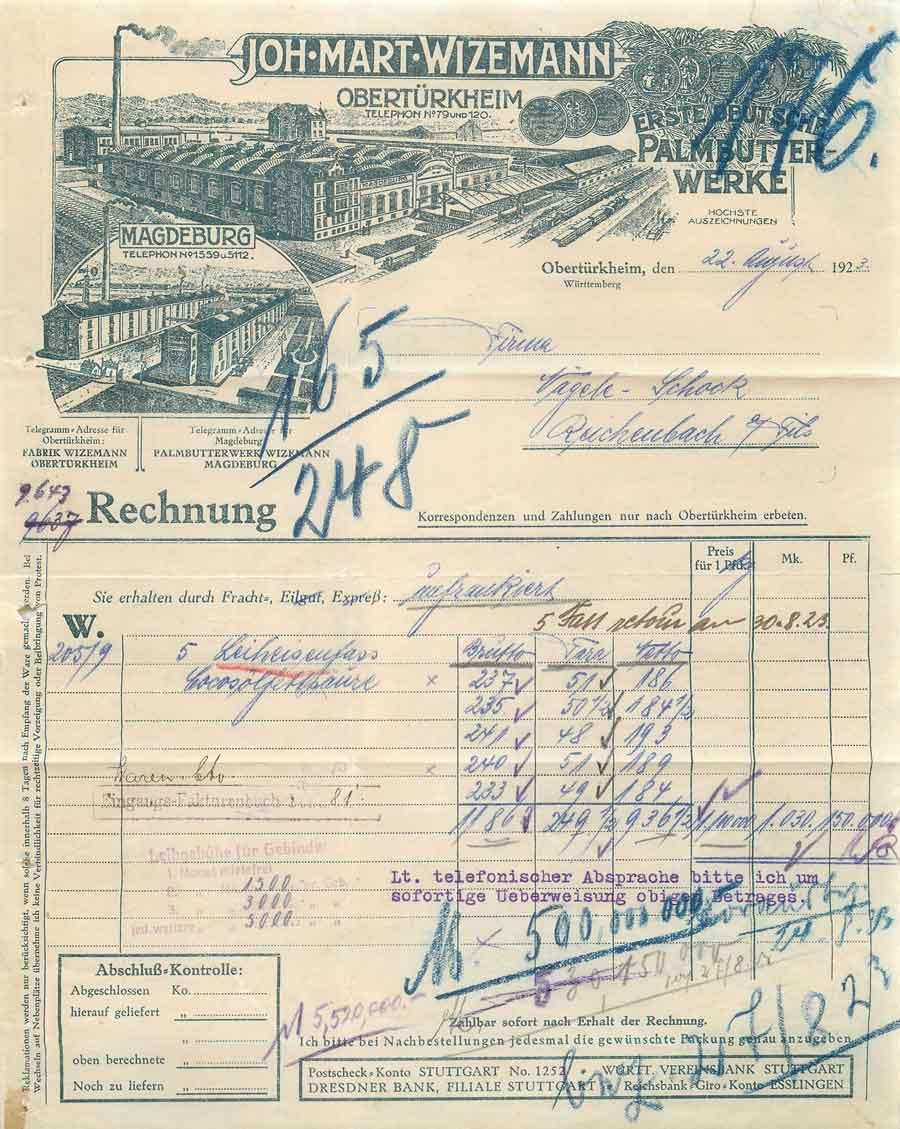 JOH·MART·WIZEMANN
OBERTÜRKHEIM
TELEPHON No 79 UND 120.
ERSTE DEUTSCHE
PALMBUTTER-
WERKE
HÖCHSTE
AUSZEICHNUNGEN
176.
MAGDEBURG
TELEPHON No 1559 u 5112.
Obertürkheim, den 22. August 1923.
Württemberg
Firma
Nägele-Schock
Reichenbach a/Fils
165
248
Telegramm-Adresse für
Obertürkheim:
FABRIK WIZEMANN
OBERTÜRKHEIM
Telegramm-Adresse für
Magdeburg
PALMBUTTERWERK WIZEMANN
MAGDEBURG
9.643
9637
Rechnung
Korrespondenzen und Zahlungen nur nach Obertürkheim erbeten.
Reklamationen werden nur berücksichtigt, wenn solche innerhalb 8 Tagen nach Empfang der Ware gemacht werden. Bei
Wechseln auf Nebenplätze übernehme ich keine Verbindlichkeit für rechtzeitige Vorzeigung oder Beibringung von Protest.
Preis
für 1 Pfd.
Mk. Pf.
Sie erhalten durch Fracht-, Eilgut, Expreß: unfrankiert
5 Fass retour am 30.8.23.
W.
205/9 5 Leiheisenfass Brutto Tara Netto
Cocosölfettsäure × 237 51 186
235 50½ 184½
241 48 193
Waren Cto. × 240 51 189
Eingangs-Fakturenbuch S. 81. 233 49 184
1186 249½ 936½ 1.030.150.000
Leihgebühr für Gebinde
1. Monat mietefrei
2. 1500
3. 3000
jed. weitere 5000
Lt. telefonischer Absprache bitte ich um
sofortige Ueberweisung obigen Betrages.
M. 500,000,000
530 150 000
27/8 23
Abschluß-Kontrolle:
Abgeschlossen Ko.
hierauf geliefert „
„
oben berechnete „
Noch zu liefern „
M 5,520,000.-
Zahlbar sofort nach Erhalt der Rechnung.
Ich bitte bei Nachbestellungen jedesmal die gewünschte Packung genau anzugeben.
27/8 23
Postscheck-Konto STUTTGART No. 1252 WÜRTT. VEREINSBANK STUTTGART
DRESDNER BANK, FILIALE STUTTGART Reichsbank-Giro-Konto ESSLINGEN